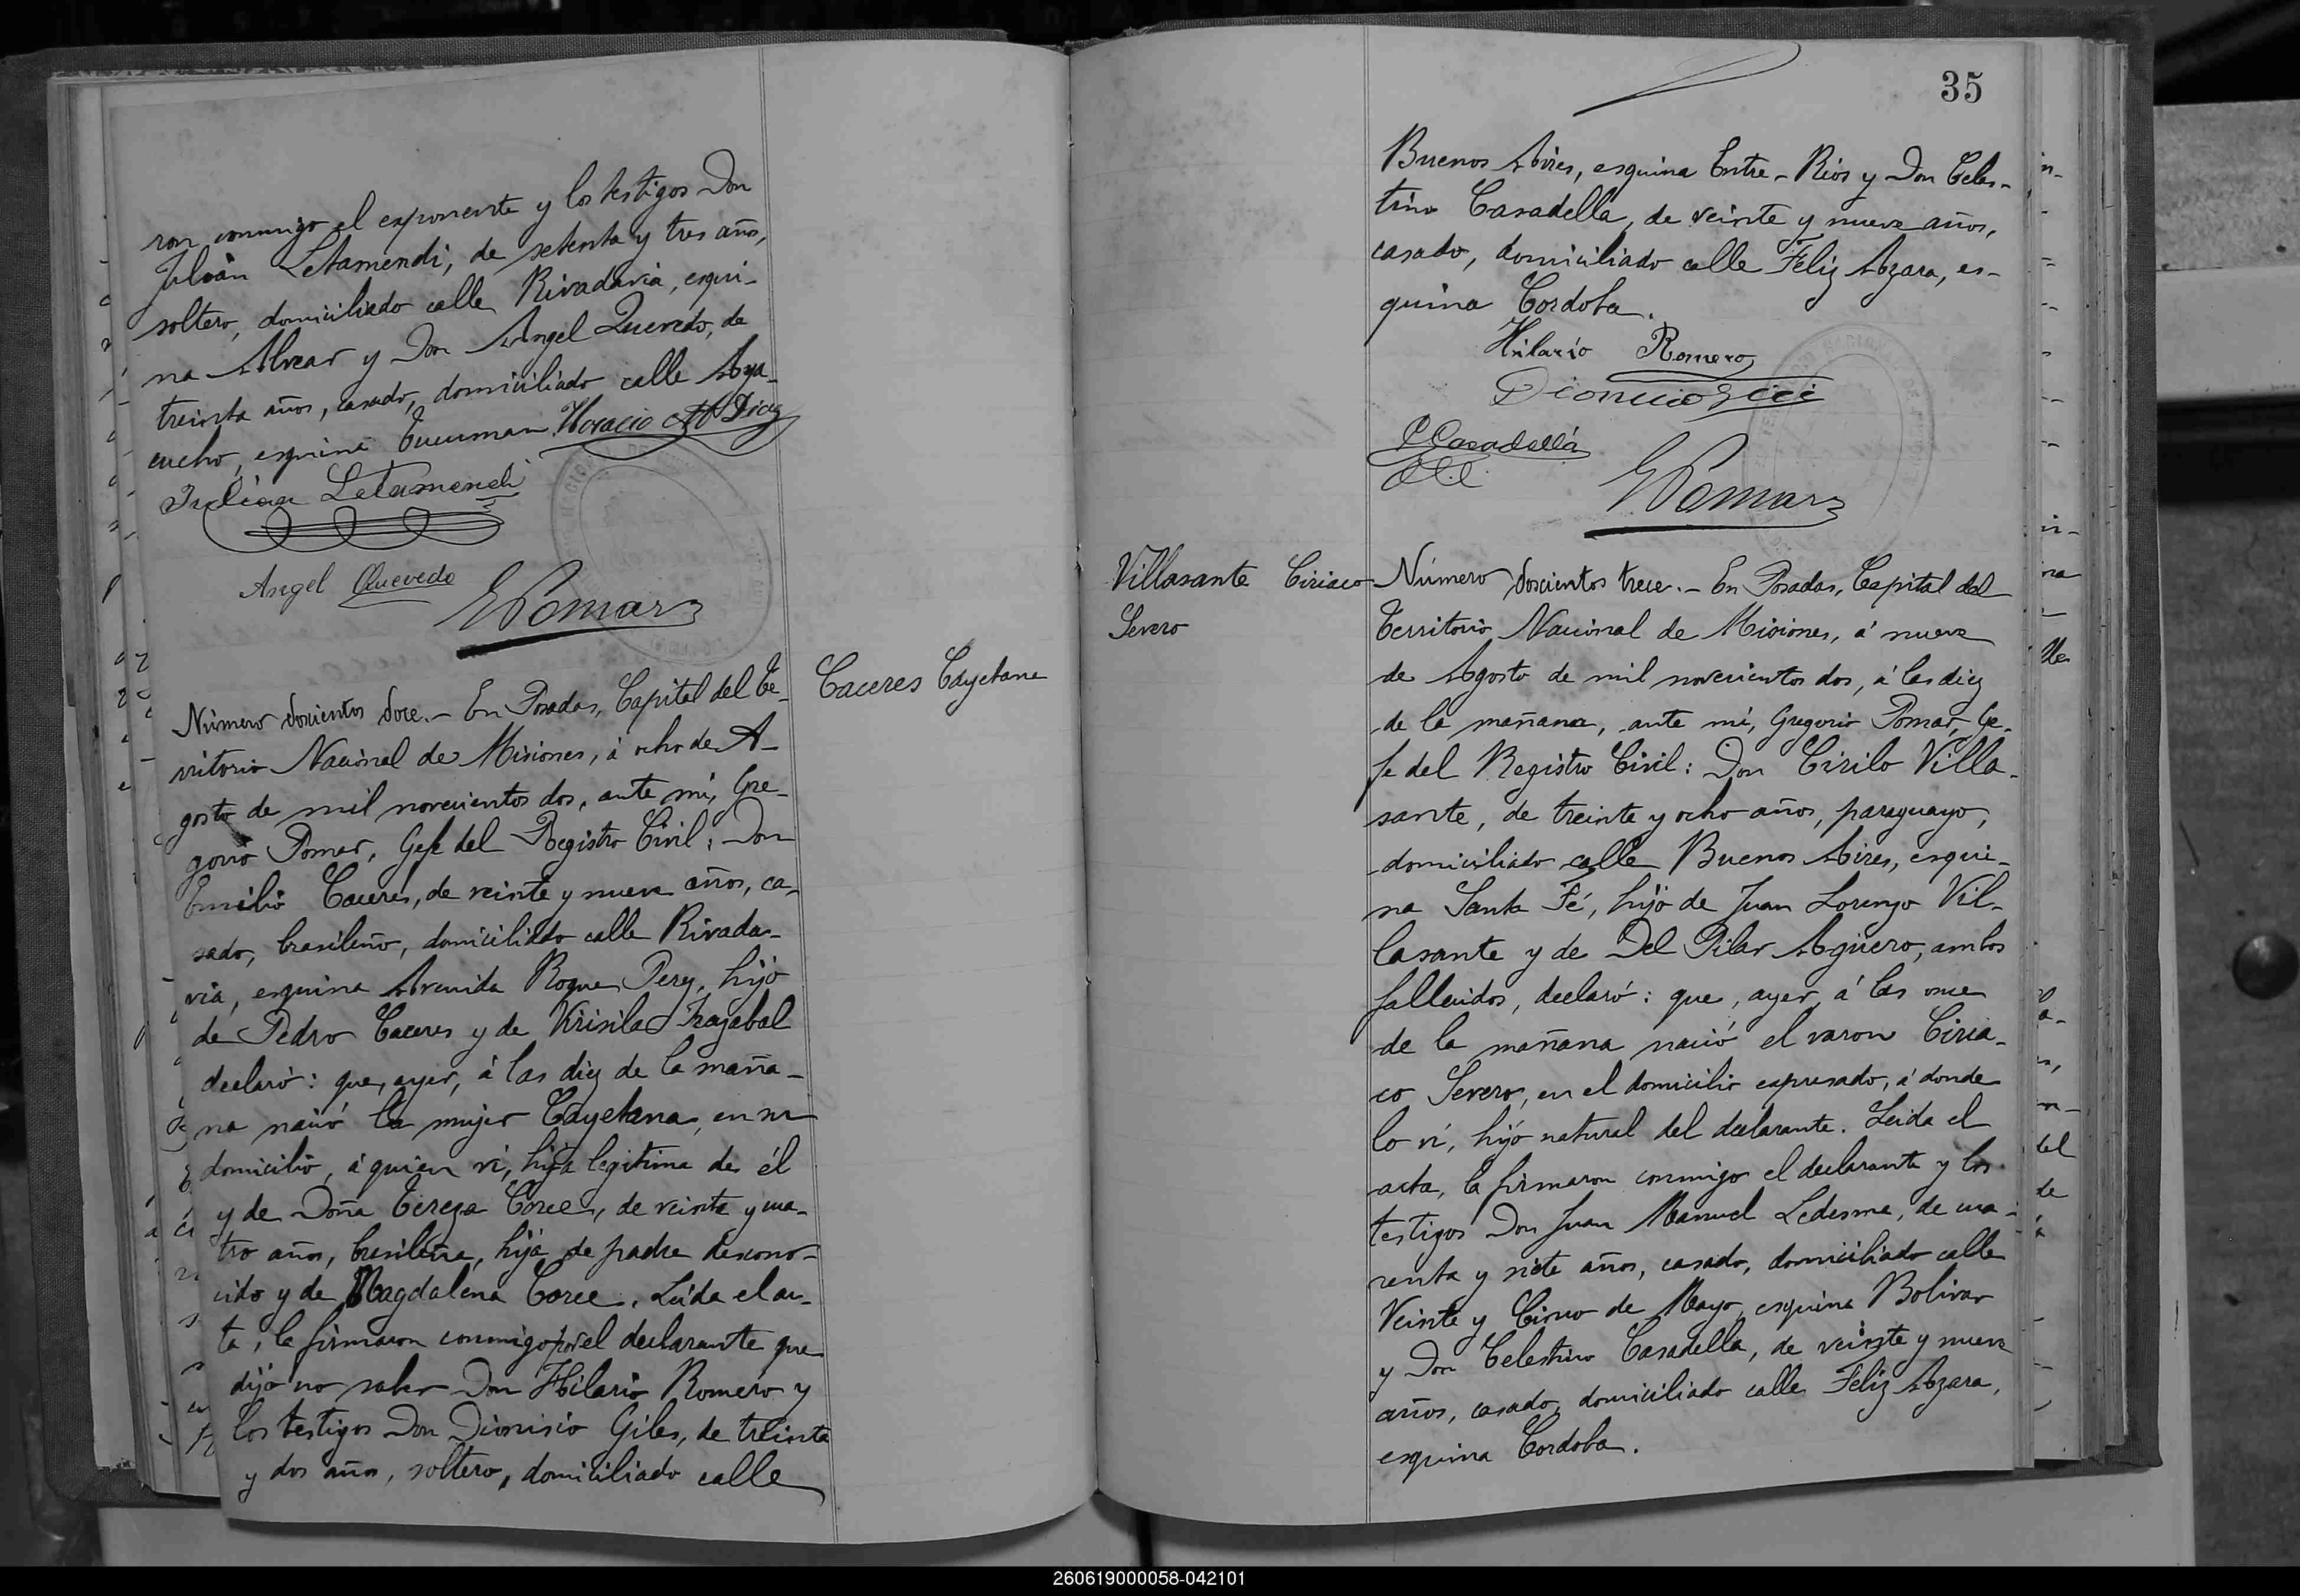 ron conmigo el exponente y los testigos Don
Julián Letamendi, de setenta y tres años,
soltero, domiciliado calle Rivadavia, esqui-
na Alvear y Don Angel Quevedo, de
treinta años, casado, domiciliado calle Aya-
cucho, esquina Tucuman. Horacio Diaz
Julian Letamendi
Angel Quevedo
GPomar
Número doscientos doce.- En Posadas, Capital del Te-
rritorio Nacional de Misiones, á ocho de A-
gosto de mil novecientos dos, ante mí, Gre-
gorio Pomar, Gefe del Registro Civil: Don
Emilio Caceres, de veinte y nueve años, ca-
sado, brasileño, domiciliado calle Rivada-
via, esquina Avenida Roque Perez, hijo
de Pedro Caceres y de Krisila Frazabal
declaró: que, ayer, á las diez de la maña-
na nació la mujer Cayetana, en su
domicilio, á quien ví, hija legitima de él
y de Doña Tereza Corce, de veinte y cua-
tro años, brasileña, hija de padre descono-
cido y de Magdalena Corce. Leida el ac-
ta, la firmaron conmigo por el declarante que
dijo no saber Don Hilario Romero y
los testigos Don Dionisio Giles, de treinta
y dos años, soltero, domiciliado calle
Caceres Cayetana
35
Buenos Aires, esquina Entre-Rios y Don Celes-
tino Casadella, de veinte y nueve años,
casado, domiciliado calle Feliz Azara, es-
quina Cordoba.
Hilario Romero
Dionicio
C Casadella
GPomar
Villasante Ciriaco
Severo
Número doscientos trece.- En Posadas, Capital del
Territorio Nacional de Misiones, á nueve
de Agosto de mil novecientos dos, á las diez
de la mañana, ante mí, Gregorio Pomar, Ge-
fe del Registro Civil: Don Cirilo Villa-
sante, de treinta y ocho años, paraguayo,
domiciliado calle Buenos Aires, esqui-
na Santa Fé, hijo de Juan Lorenzo Vil-
lasante y de Del Pilar Agüero, ambos
fallecidos, declaró: que, ayer, á las once
de la mañana nació el varon Ciria-
co Severo, en el domicilio expresado, á donde
lo ví, hijo natural del declarante. Leida el
acta, la firmaron conmigo el declarante y los
testigos Don Juan Manuel Ledesma, de cua-
renta y siete años, casado, domiciliado calle
Veinte y Cinco de Mayo, esquina Bolivar
y Don Celestino Casadella, de veinte y nueve
años, casado, domiciliado calle Feliz Azara,
esquina Cordoba.
260619000058-042101